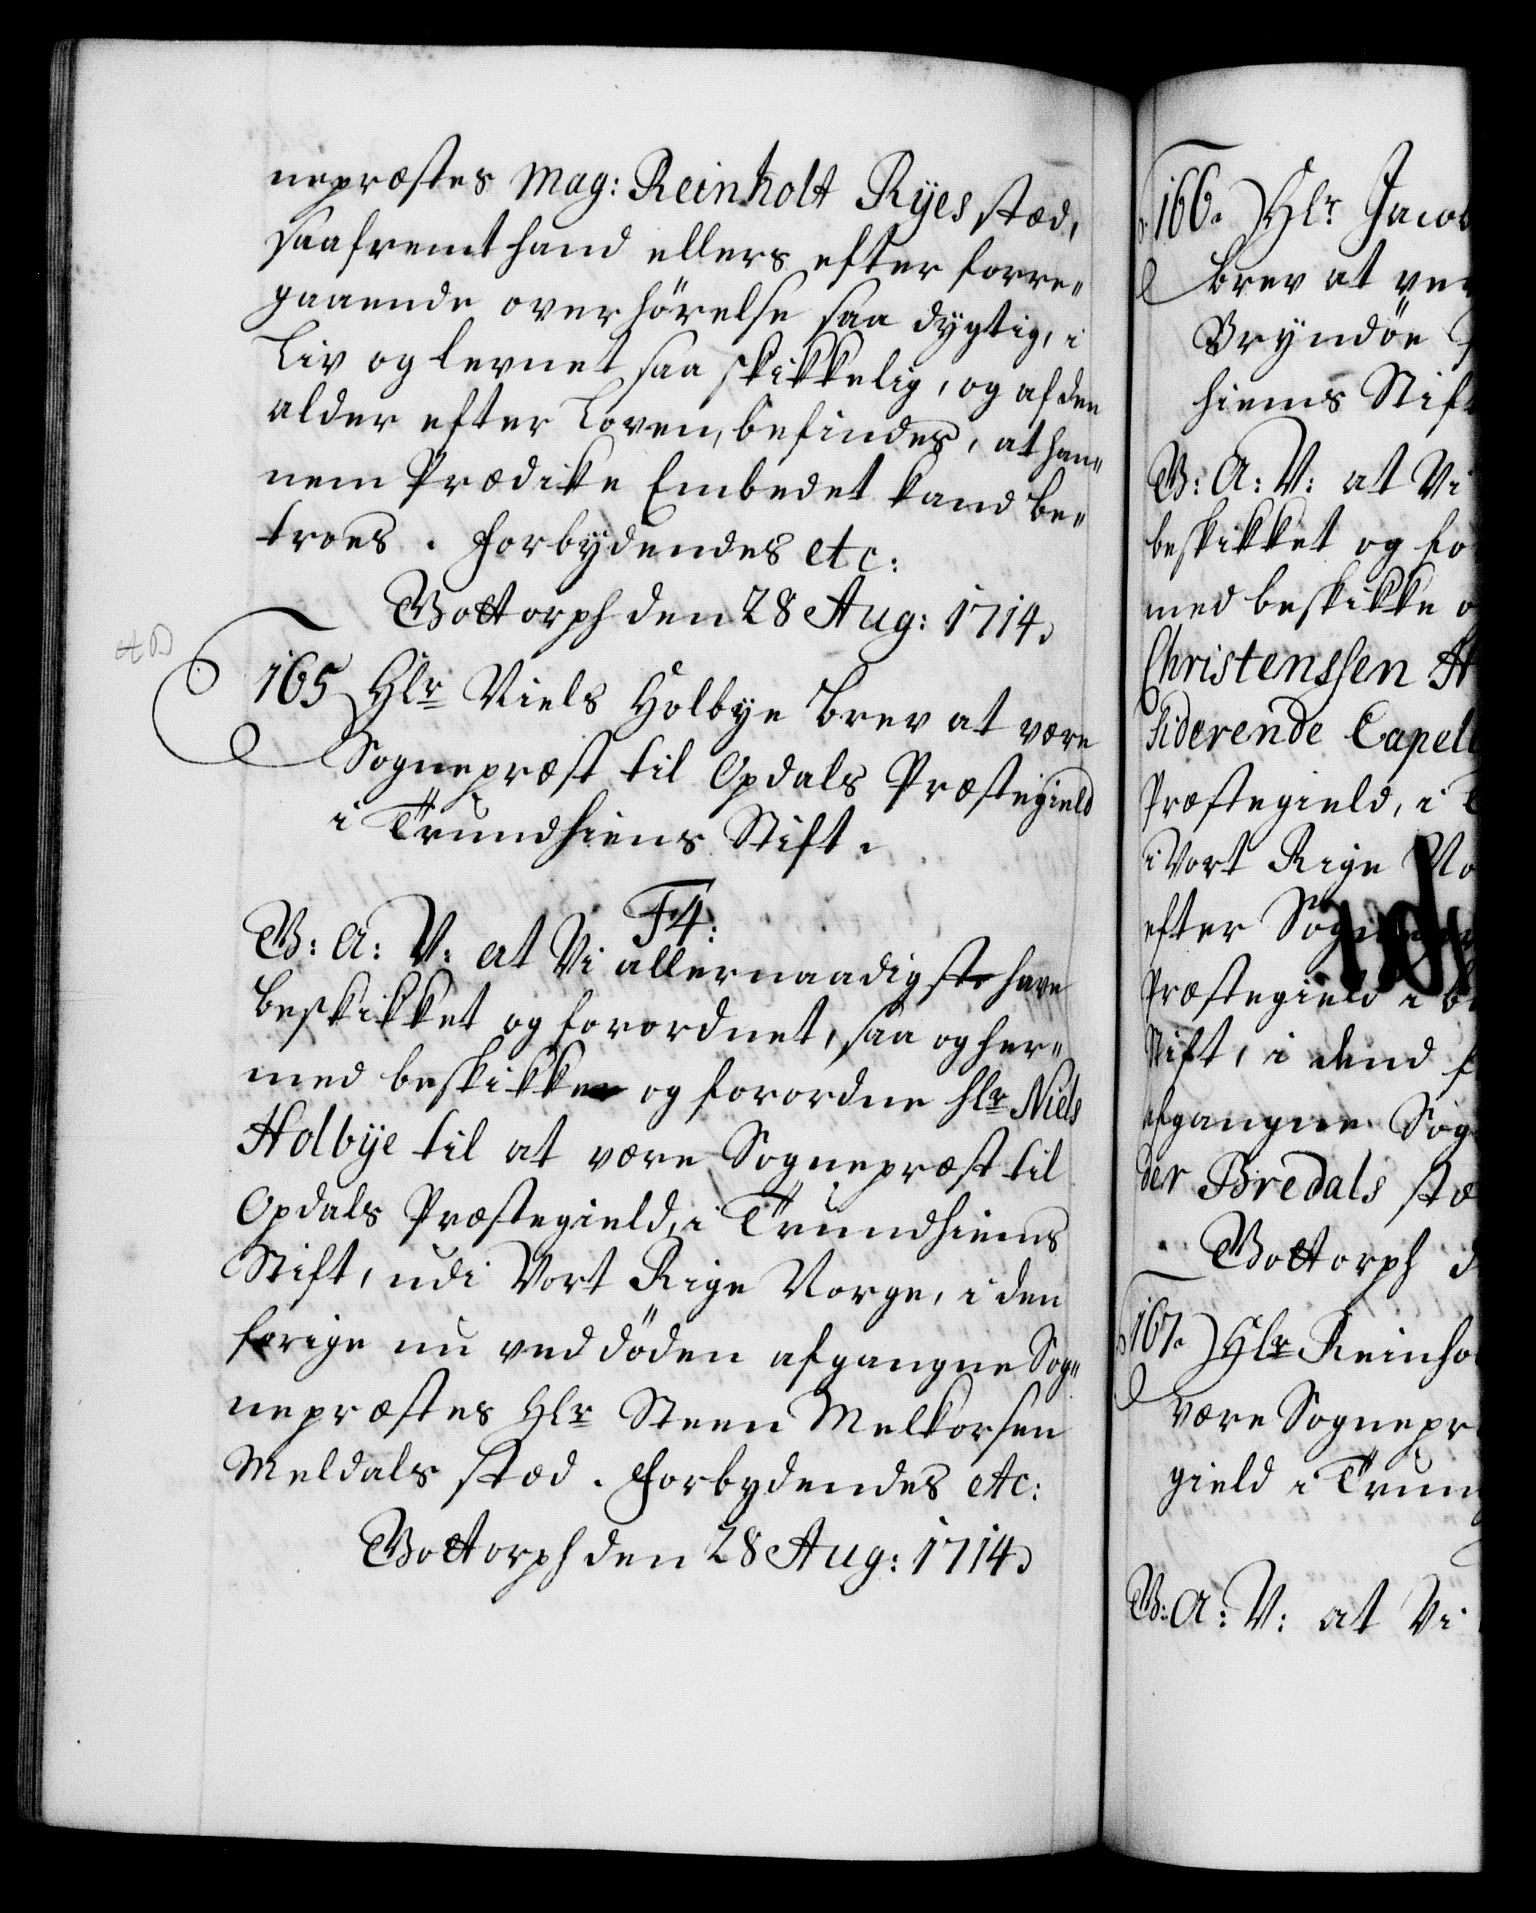 nepræstes Mag: Reinholt Ryes stæd,
saafremt hand ellers efter forre„
gaaende overhörelse saa dygtig, i
Liv og levnet saa skikkelig, og af den
alder efter Loven, befindes, at han„
nem Prædike Embedet kand be„
troes. Forbydendes etc:
Gottorph den 28 Aug: 1714.
165 Hlr Niels Holbye brev at være
Sognepræst til Opdals Præstegield
i Trundhiems Stift.
F4:
G: A: V: at Vi allernaadigst have
beskikket og forordnet, saa og her„
med beskikke og forordne hlr Niels
Holbye til at være Sognepræst til
Opdals Præstegield, i Trundhiems
Stift, udi Vort Rige Norge, i den
forige nu ved döden afgangne Sog„
nepræstes Hlr Steen Melkorsen
Meldals stæd. Forbydendes etc:
Gottorph den 28 Aug: 1714.
166. Hlr Jacob
brev at
Bryndöe
hiems Stift
G: A: V: at Vi
beskikket og
med beskikke
Christenssen
siderende
Præstegield, i
i Vort Rige
efter
Præstegield i
Stift, i dend
afgangne Sog
der Bredals
Gottorph
167. Hlr
være
gield i
G: A: V: at Vi